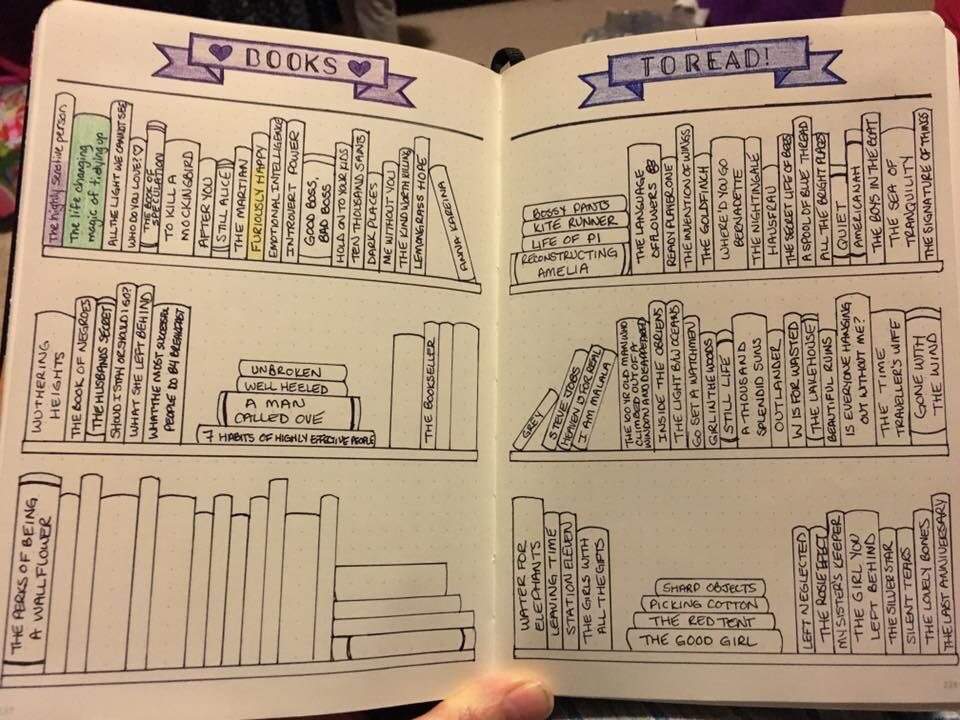 BOOKS
TO READ!
The highly sensitive person
The life changing
magic of tidying up
ALL THE LIGHT WE CANNOT SEE
WHO DO YOU LOVE?
THE BOOK OF
SPECULATION
TO KILL A
MOCKINGBIRD
AFTER YOU
STILL ALICE
THE MARTIAN
FURIOUSLY HAPPY
EMOTIONAL INTELLIGENCE
INTROVERT POWER
GOOD BOSS,
BAD BOSS
HOLD ON TO YOUR KIDS
TEN THOUSAND SAINTS
DARK PLACES
ME WITHOUT YOU
THE KIND WORTH KILLING
LEMONGRASS HOPE
ANNA KARENINA
WUTHERING
HEIGHTS
THE BOOK OF NEGROES
THE HUSBANDS SECRET
SHOULD I STAY OR SHOULD I GO?
WHAT SHE LEFT BEHIND
WHAT THE MOST SUCCESSFUL
PEOPLE DO BY BREAKFAST
UNBROKEN
WELL HEELED
A MAN
CALLED OVE
7 HABITS OF HIGHLY EFFECTIVE PEOPLE
THE BOOKSELLER
THE PERKS OF BEING
A WALLFLOWER
BOSSY PANTS
KITE RUNNER
LIFE OF PI
RECONSTRUCTING
AMELIA
THE LANGUAGE
OF FLOWERS
READY PLAYER ONE
THE INVENTION OF WINGS
THE GOLDFINCH
WHERE'D YOU GO
BERNADETTE
THE NIGHTINGALE
HAUSFRAU
THE SECRET LIFE OF BEES
A SPOOL OF BLUE THREAD
ALL THE BRIGHT PLACES
QUIET
AMERICANAH
THE BOYS IN THE BOAT
THE SEA OF
TRANQUILITY
THE SIGNATURE OF THINGS
GREY
STEVE JOBS
HEAVEN IS FOR REAL
I AM MALALA
THE 100 YR OLD MAN WHO
CLIMBED OUT OF A
WINDOW AND DISAPPEARED
INSIDE THE OBRIENS
THE LIGHT B/W OCEANS
GO SET A WATCHMEN
GIRL IN THE WOODS
STILL LIFE
A THOUSAND
SPLENDID SUNS
OUTLANDER
W IS FOR WASTED
THE LAKEHOUSE
BEAUTIFUL RUINS
IS EVERYONE HANGING
OUT WITHOUT ME?
THE TIME
TRAVELER'S WIFE
GONE WITH
THE WIND
WATER FOR
ELEPHANTS
LEAVING TIME
STATION ELEVEN
THE GIRLS WITH
ALL THE GIFTS
SHARP OBJECTS
PICKING COTTON
THE RED TENT
THE GOOD GIRL
LEFT NEGLECTED
THE ROSIE EFFECT
MY SISTER'S KEEPER
THE GIRL YOU
LEFT BEHIND
THE SILVER STAR
SILENT TEARS
THE LOVELY BONES
THE LAST ANNIVERSARY